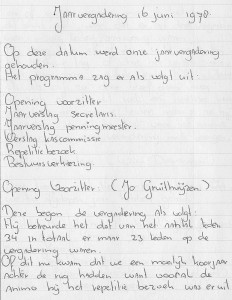 Jaarvergadering 16 juni 1978
Op deze datum werd onze jaarvergadering
gehouden.
Het programma zag er als volgt uit:
Opening voorzitter
Jaarverslag secretaris.
Jaarverslag penningmeester.
Verslag kascommissie
Repetitie bezoek
Bestuursverkiezing
Opening Voorzitter (Jo Gruithuijzen)
Deze begon de vergadering als volgt:
Hij betreurde het dat van het aantal leden
34 in totaal er maar 23 leden op de
vergadering waren.
Op dit nu kwam dat we een moeilijk koorjaar
achter de rug hadden want vooral de
animo bij het repetitie bezoek was er uit